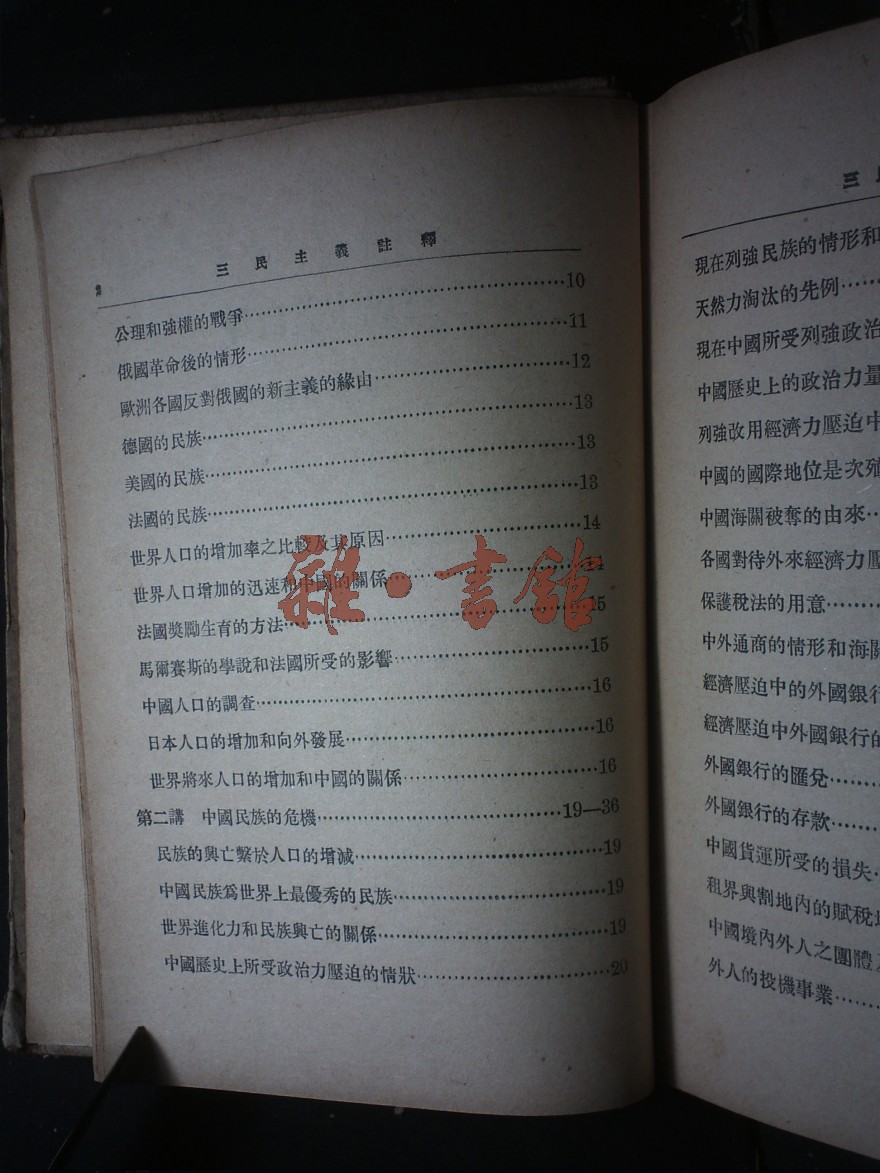 三民主義註釋
公理和強權的戰爭……10
俄國革命後的情形……11
歐洲各國反對俄國的新主義的緣由……12
德國的民族……13
美國的民族……13
法國的民族……13
世界人口的增加率之比較及其原因……14
世界人口增加的迅速和中國的關係……14
法國獎勵生育的方法……15
馬爾賽斯的學說和法國所受的影響……15
中國人口的調查……16
日本人口的增加和向外發展……16
世界將來人口的增加和中國的關係……16
第二講 中國民族的危機……19—36
民族的興亡繫於人口的增減……19
中國民族爲世界上最優秀的民族……19
世界進化力和民族興亡的關係……19
中國歷史上所受政治力壓迫的情狀……20
雜·書館
三民
現在列強民族的情形和
天然力淘汰的先例……
現在中國所受列強政治
中國歷史上的政治力量
列強改用經濟力壓迫中
中國的國際地位是次殖
中國海關被奪的由來…
各國對待外來經濟力壓
保護稅法的用意……
中外通商的情形和海關
經濟壓迫中的外國銀行
經濟壓迫中外國銀行的
外國銀行的匯兌……
外國銀行的存款……
中國貨運所受的損失…
租界與割地內的賦稅
中國境內外人之團體
外人的投機事業……